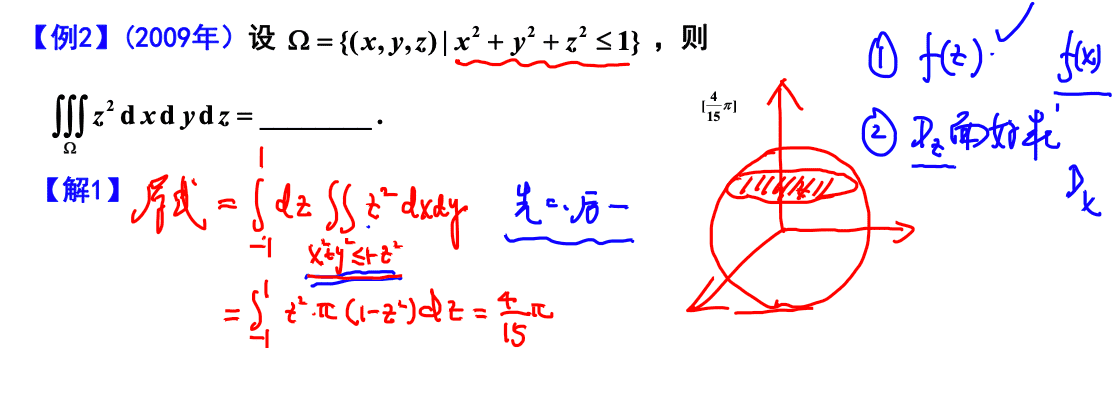 【例2】(2009年) 设 Ω = {(x, y, z) | x² + y² + z² ≤ 1} ，则
∭_Ω z² d x d y d z = ________ .
[4/15 π]
【解1】 原式 = ∫_{-1}^{1} dz ∬_{x²+y²≤1-z²} z² dxdy 先二后一
= ∫_{-1}^{1} z²·π(1-z²)dz = 4/15 π
① f(z) ✓ f(x)
② D_z 面好求
D_x